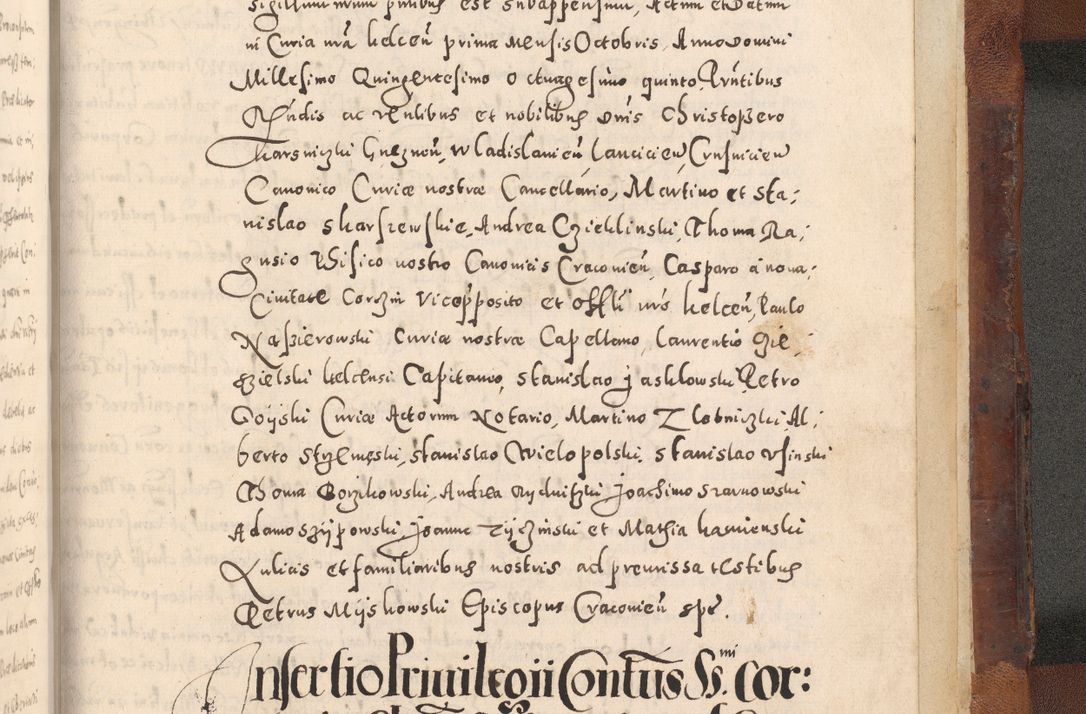 sigillum nrum pntibus est subappensum, Actum et Datum
in Curia nra kelcen prima Mensis Octobris, Anno Domini
Millesimo Quingentesimo Octuagesimo quinto, Pntibus
Rndis ac Venlibus et nobilibus Dnis Christophero
Karsniczki Gneznen, Wladislavien Lancicien, Crusvicien
Canonico Curiæ nostræ Cancellario, Martino et Sta,
nislao Skarszewskie, Andrea Czieklinski, Thoma Ra,
gusio Phisico nostro Canonicis Cracovien, Casparo a nova,
Civitate Corzin Viceppposito et offli nro kelcen, Paulo
Naszierowski Curiæ nostræ Capellano, Laurentio Gie,
gzielski kelcensi Capitaneo, Stanislao Jasklowski, Petro
Goyski Curiæ Actorum Notario, Martino Zlotniczki Al,
berto Strzemeski, Stanislao Wielopolski, Stanislao Usinski
Thoma Gorzkowski, Andrea Rydniszki Joachimo Szarnowski
Adamo Szypowski, Joanne Zyczinski et Mathia kamienski
Aulicis et familiaribus nostris ad premissa testibus
Petrus Myskowski Episcopus Cracovien spt.
Insertio Privilegii Contus Ss.mi Cor: